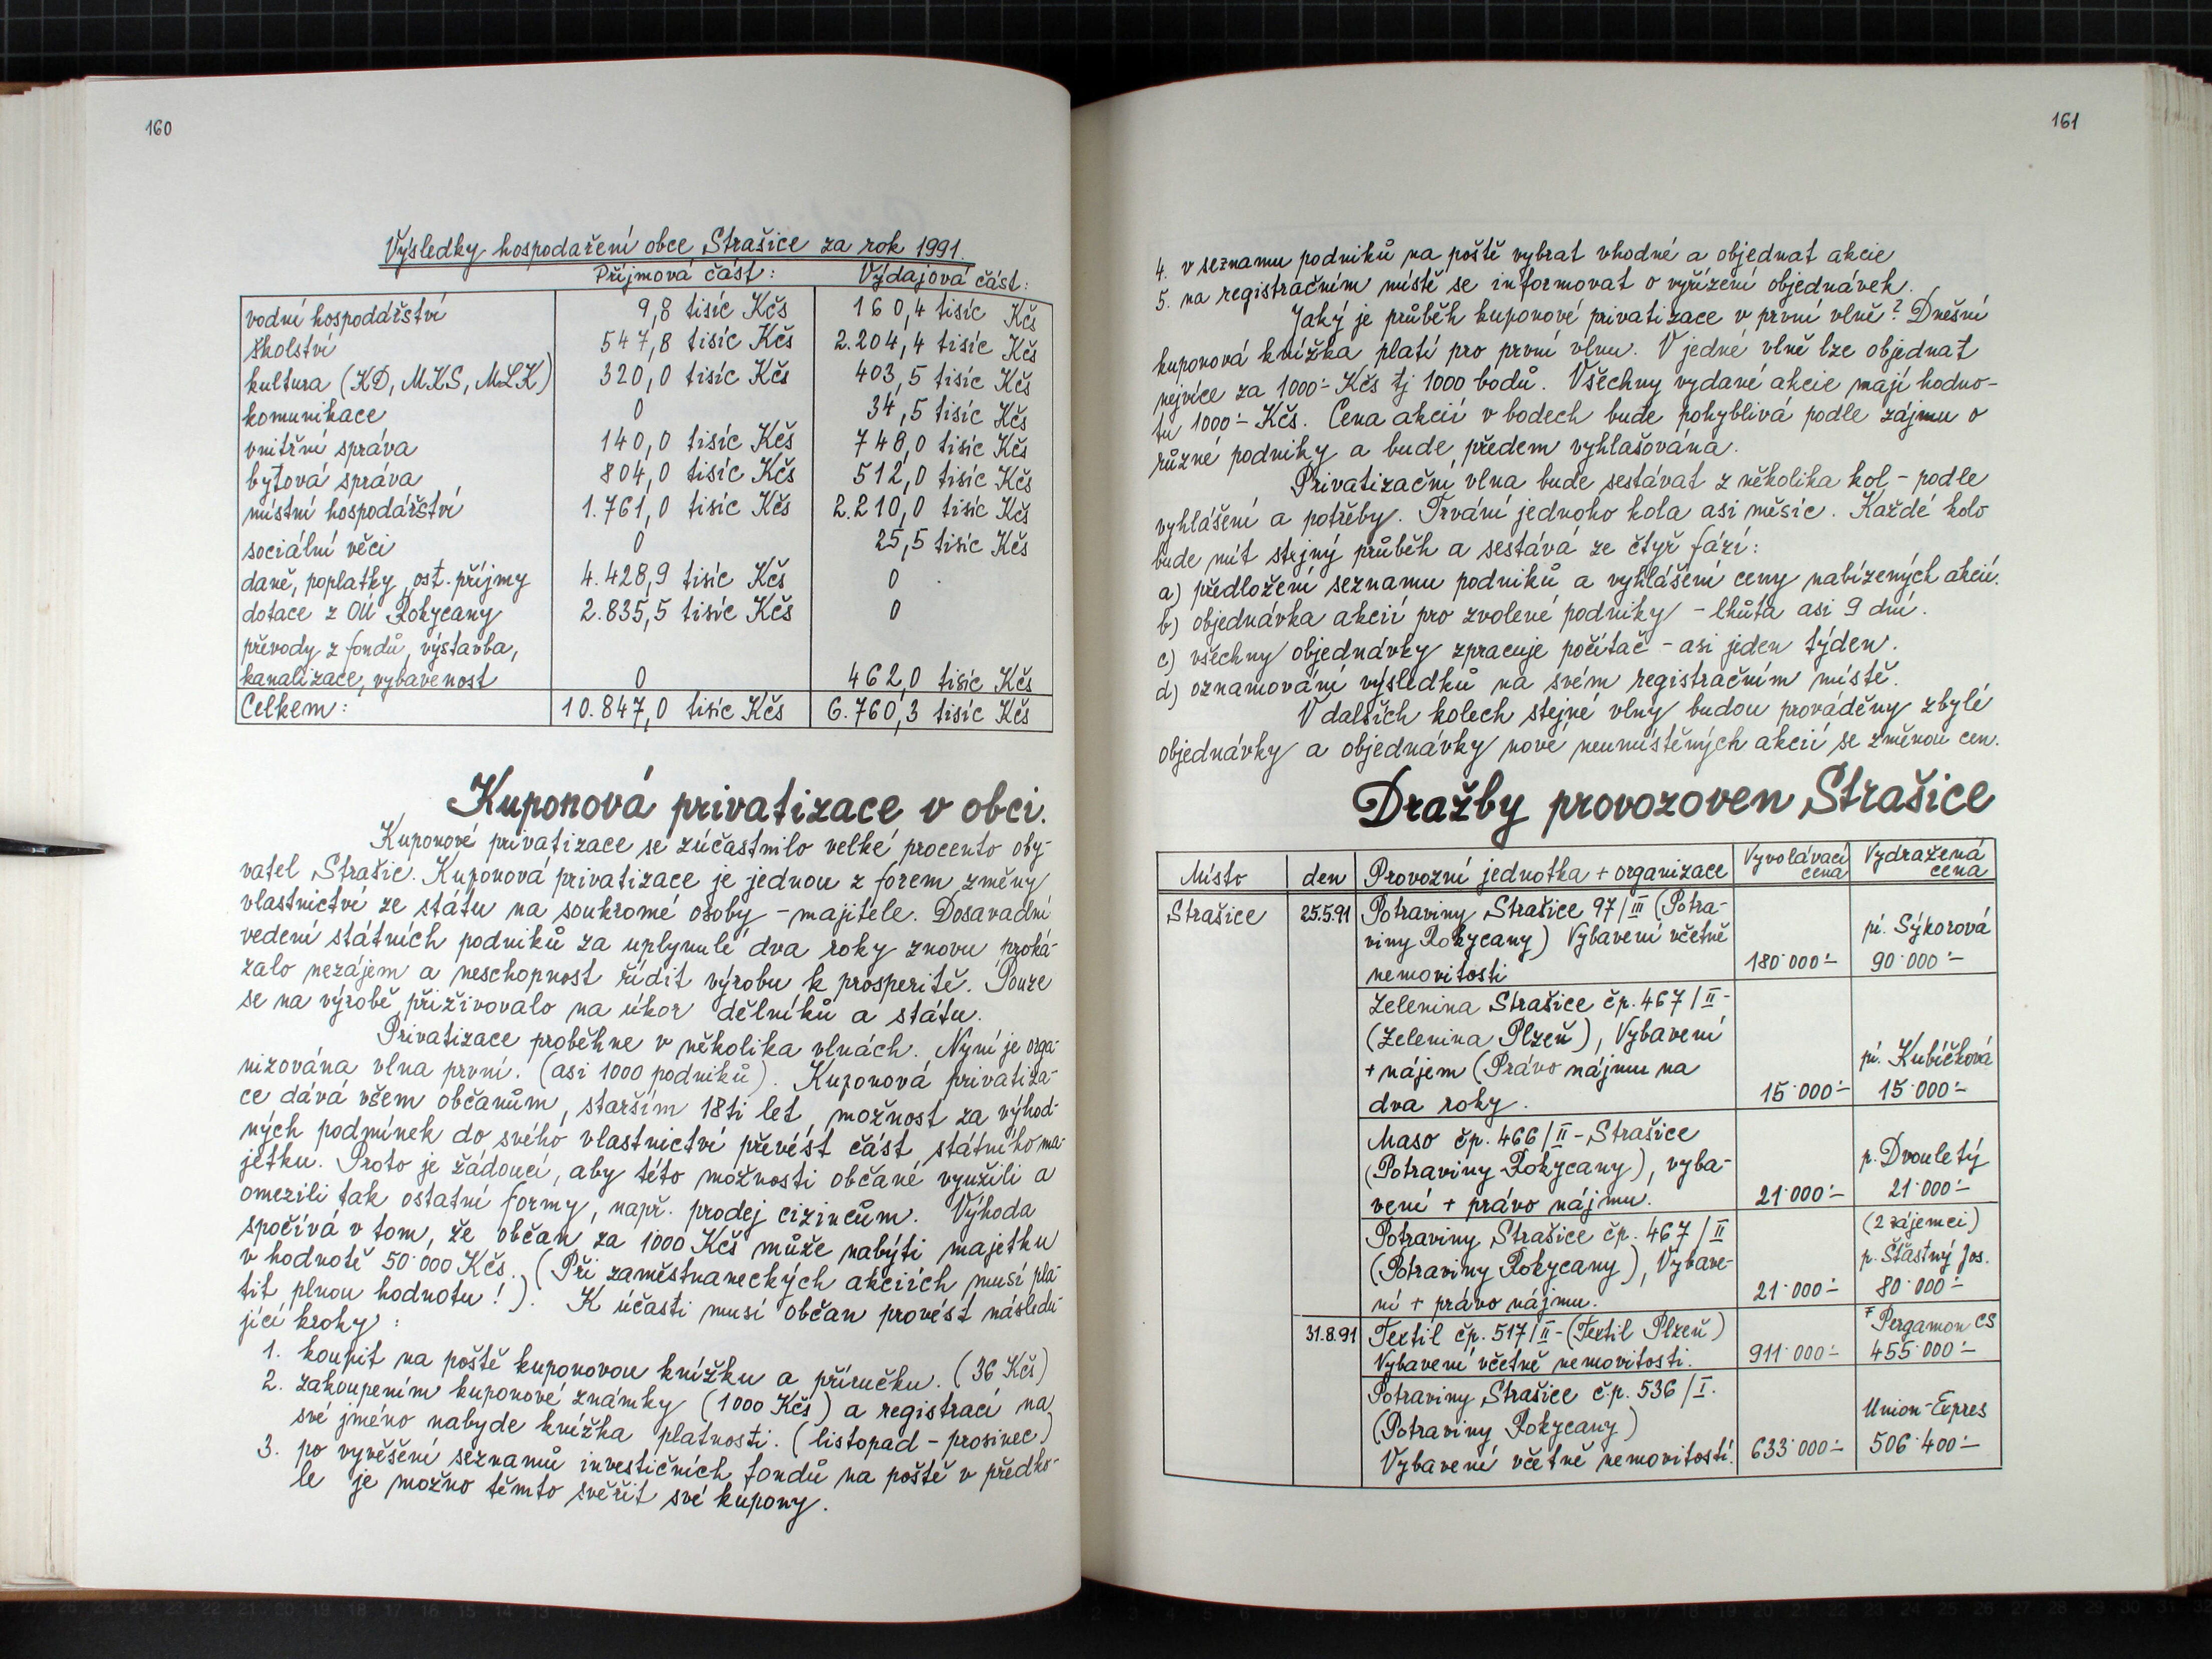 160
Výsledky hospodaření obce Strašice za rok 1991.
Příjmová část: Výdajová část:
vodní hospodářství 9,8 tisíc Kčs 160,4 tisíc Kčs
školství 547,8 tisíc Kčs 2.204,4 tisíc Kčs
kultura (KD, MKS, MLK) 320,0 tisíc Kčs 403,5 tisíc Kčs
komunikace 0 34,5 tisíc Kčs
vnitřní správa 140,0 tisíc Kčs 748,0 tisíc Kčs
bytová správa 804,0 tisíc Kčs 512,0 tisíc Kčs
místní hospodářství 1.761,0 tisíc Kčs 2.210,0 tisíc Kčs
sociální věci 0 25,5 tisíc Kčs
daně, poplatky, ost. příjmy 4.428,9 tisíc Kčs 0
dotace z OÚ Rokycany 2.835,5 tisíc Kčs 0
převody z fondů, výstavba,
kanalizace, vybavenost 0 462,0 tisíc Kčs
Celkem: 10.847,0 tisíc Kčs 6.760,3 tisíc Kčs
Kuponová privatizace v obci.
Kuponové privatizace se zúčastnilo velké procento oby-
vatel Strašic. Kuponová privatizace je jednou z forem změny
vlastnictví ze státu na soukromé osoby - majitele. Dosavadní
vedení státních podniků za uplynulé dva roky znovu proká-
zalo nezájem a neschopnost řídit výrobu k prosperitě. Pouze
se na výrobě přiživovalo na úkor dělníků a státu.
Privatizace proběhne v několika vlnách. Nyní je orga-
nizována vlna první. (asi 1000 podniků). Kuponová privatiza-
ce dává všem občanům, starším 18ti let, možnost za výhod-
ných podmínek do svého vlastnictví převést část státního ma-
jetku. Proto je žádoucí, aby této možnosti občané využili a
omezili tak ostatní formy, např. prodej cizincům. Výhoda
spočívá v tom, že občan za 1000 Kčs může nabýti majetku
v hodnotě 50˙000 Kčs. (Při zaměstnaneckých akciích musí pla-
tit plnou hodnotu!). K účasti musí občan provést následu-
jící kroky:
1. koupit na poště kuponovou knížku a příručku. (36 Kčs)
2. zakoupením kuponové známky (1000 Kčs) a registrací na
své jméno nabyde knížka platnosti. (listopad - prosinec)
3. po vyvěšení seznamů investičních fondů na poště v předho-
le je možno těmto svěřit své kupony.
161
4. v seznamu podniků na poště vybrat vhodné a objednat akcie
5. na registračním místě se informovat o vyřízení objednávek.
Jaký je průběh kuponové privatizace v první vlně? Dnešní
kuponová knížka platí pro první vlnu. V jedné vlně lze objednat
nejvíce za 1000:- Kčs tj 1000 bodů. Všechny vydané akcie mají hodno-
tu 1000:- Kčs. Cena akcií v bodech bude pohyblivá podle zájmu o
různé podniky a bude předem vyhlašována.
Privatizační vlna bude sestávat z několika kol - podle
vyhlášení a potřeby. Trvání jednoho kola asi měsíc. Každé kolo
bude mít stejný průběh a sestává ze čtyř fází:
a) předložení seznamu podniků a vyhlášení ceny nabízených akcií.
b) objednávka akcií pro zvolené podniky - lhůta asi 9 dní.
c) všechny objednávky zpracuje počítač - asi jeden týden.
d) oznamování výsledků na svém registračním místě.
V dalších kolech stejné vlny budou prováděny zbylé
objednávky a objednávky nové neumístěných akcií se změnou cen.
Dražby provozoven Strašice
Místo den Provozní jednotka + organizace Vyvolávací cena Vydražená cena
Strašice 25.5.91 Potraviny Strašice 97/III (Potra-
viny Rokycany) Vybavení včetně pí. Sýkorová
nemovitosti 180˙000:- 90˙000:-
Zelenina Strašice čp. 467/II-
(Zelenina Plzeň), Vybavení
+ nájem (Právo nájmu na pí. Kubíčková
dva roky. 15˙000:- 15˙000:-
Maso čp. 466/II - Strašice
(Potraviny Rokycany), vyba- p. Dvouletý
vení + právo nájmu. 21˙000:- 21˙000:-
Potraviny Strašice čp. 467/II (2 zájemci)
(Potraviny Rokycany), Vybave- p. Šťastný Jos.
ní + právo nájmu. 21˙000:- 80˙000:-
31.8.91 Textil čp. 517/II - (Textil Plzeň) F Pergamon CS
Vybavení včetně nemovitosti. 911˙000:- 455˙000:-
Potraviny Strašice č.p. 536/I.
(Potraviny Rokycany) Union-Expres
Vybavení včetně nemovitostí. 633˙000:- 506˙400:-